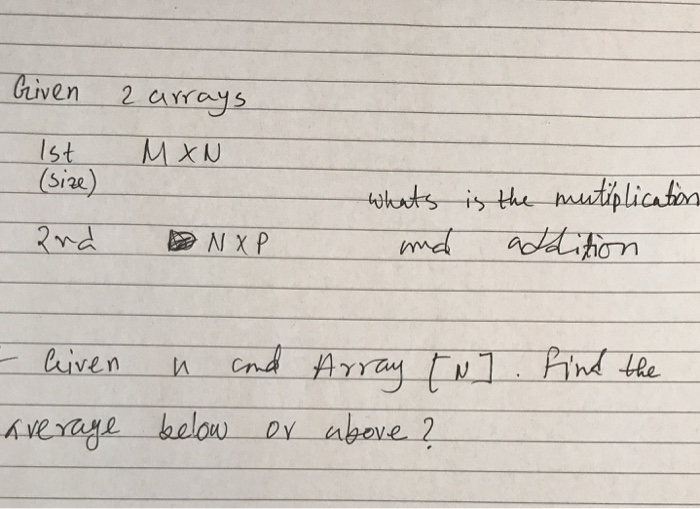 Given 2 arrays
1st M X N
(Size)
whats is the mutiplication
2nd N X P and addition
- Given n and Array [N]. Find the
Average below or above?